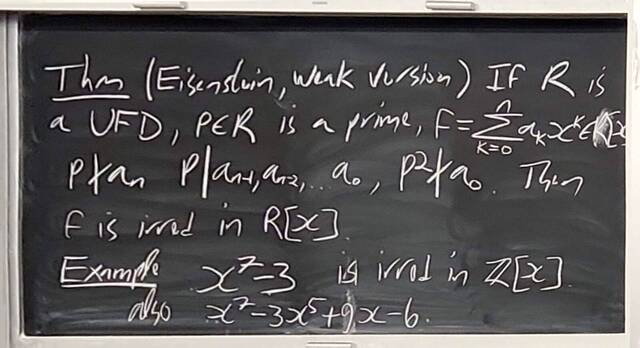 Thm (Eisenstein, weak version) If R is
a UFD, p∈R is a prime, f = ∑_{k=0}^{n} a_k x^k ∈ R[x]
p∤a_n p|a_{n-1}, a_{n-2}, ... a_0, p²∤a_0. Then
f is irred in R[x].
Example x⁷-3 is irred in ℤ[x]
also x⁷-3x⁵+9x-6.